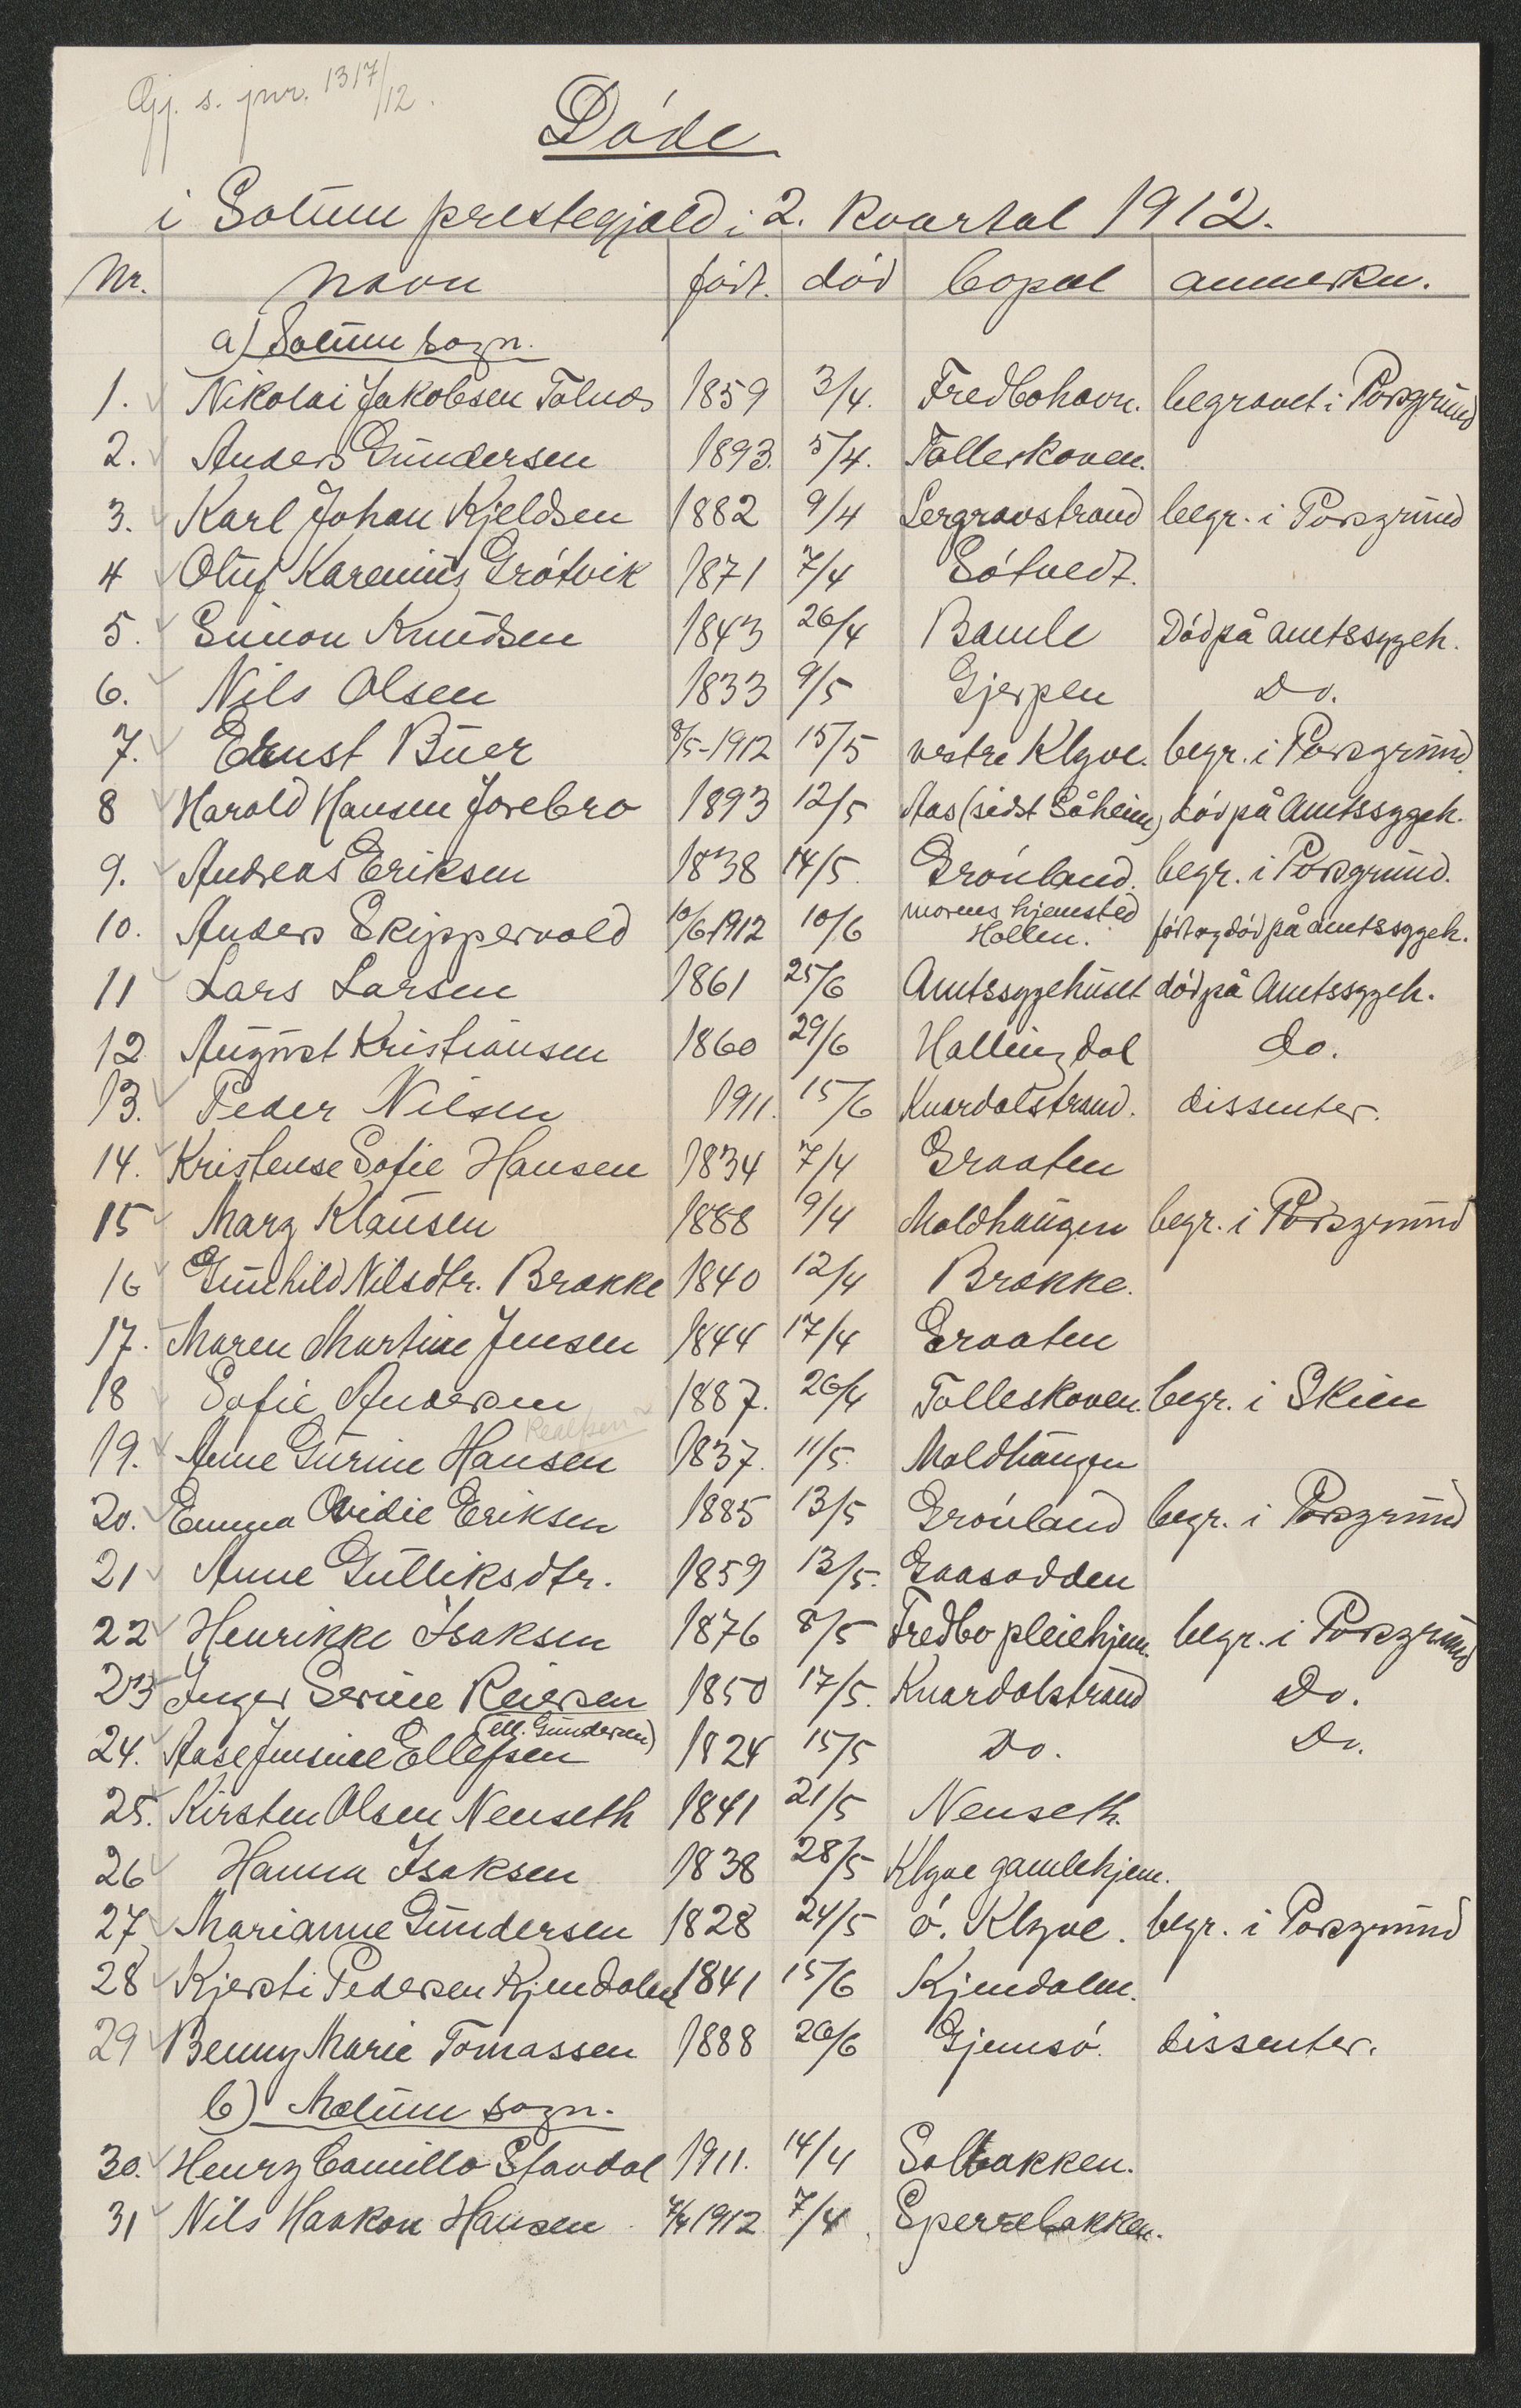 Gj. s. jnr. 1317/12.
Døde
i Solum prestegjæld i 2. kvartal 1912.
Nr. navn født. død bopæl anmerkn.
a) Solum sogn.
1. Nikolai Jakobsen Tolnæs 1859 3/4. Fredbohavn. begravet i Porsgrund
2. Anders Gundersen 1893. 5/4. Tolleskoven.
3. Karl Johan Kjeldsen 1882 9/4 Lergravstrand begr. i Porsgrund
4 Oluf Karenius Grøtvik 1871 7/4 Søtvedt.
5. Simon Knudsen 1843 26/4 Bamle Død på amtssygeh.
6. Nils Olsen 1833 9/5 Gjerpen Do.
7. Ernst Buer 8/5-1912 15/5 vestre Klyve. begr. i Porsgrund.
8 Harald Hansen Jorebro 1893 12/5 Aas (sidst Såheim) død på Amtssygeh.
9. Andreas Eriksen 1838 14/5. Grønland. begr. i Porsgrund.
10. Anders Skippervold 10/6 1912 10/6 morens hjemsted Hollen. født og død på amtssygeh.
11 Lars Larsen 1861 25/6 Amtssygehuset død på Amtssygeh.
12 August Kristiansen 1860 29/6 Hallingdal do.
13. Peder Nilsen 1911. 15/6 Knardalstrand. dissenter.
14. Kristense Sofie Hansen 1834 7/4 Graaten
15 Mary Klausen 1888 9/4 Moldhaugen begr. i Porsgrund
16 Gunhild Nilsdtr. Brække 1840 12/4 Brække.
17. Maren Martine Jensen 1844 17/4 Graaten
18 Sofie Andersen 1887. 26/4 Tolleskoven. begr. i Skien
19. Anne Gurine Hansen 1837. 11/5. Moldhaugen
20. Emma Ovidie Eriksen 1885 13/5 Grønland begr. i Porsgrund
21 Anne Gulliksdtr. 1859 13/5. Gaasodden
22 Henrikke Isaksen 1876 8/5 Fredbo pleiehjem. begr. i Porsgrund
23 Inger Serine Reiersen 1850 17/5. Knardalstrand Do.
24. Aase Jensine Ellefsen (ell. Gundersen) 1824 15/5 Do. Do.
25. Kirsten Olsen Nenseth 1841 21/5 Nenseth.
26 Hanna Isaksen 1838 28/5 Klyve gamlehjem.
27 Marianne Gundersen 1828 24/5 ø. Klyve. begr. i Porsgrund
28 Kjersti Pedersen Kjendalen 1841 15/6 Kjendalen.
29 Benny Marie Tomassen 1888 20/6 Gjemsø. dissenter.
b) Mælum sogn.
30. Henry Camillo Stavdal 1911. 14/4 Solbakken.
31 Nils Haakon Hansen 7/4 1912 7/4. Sperrebakken.